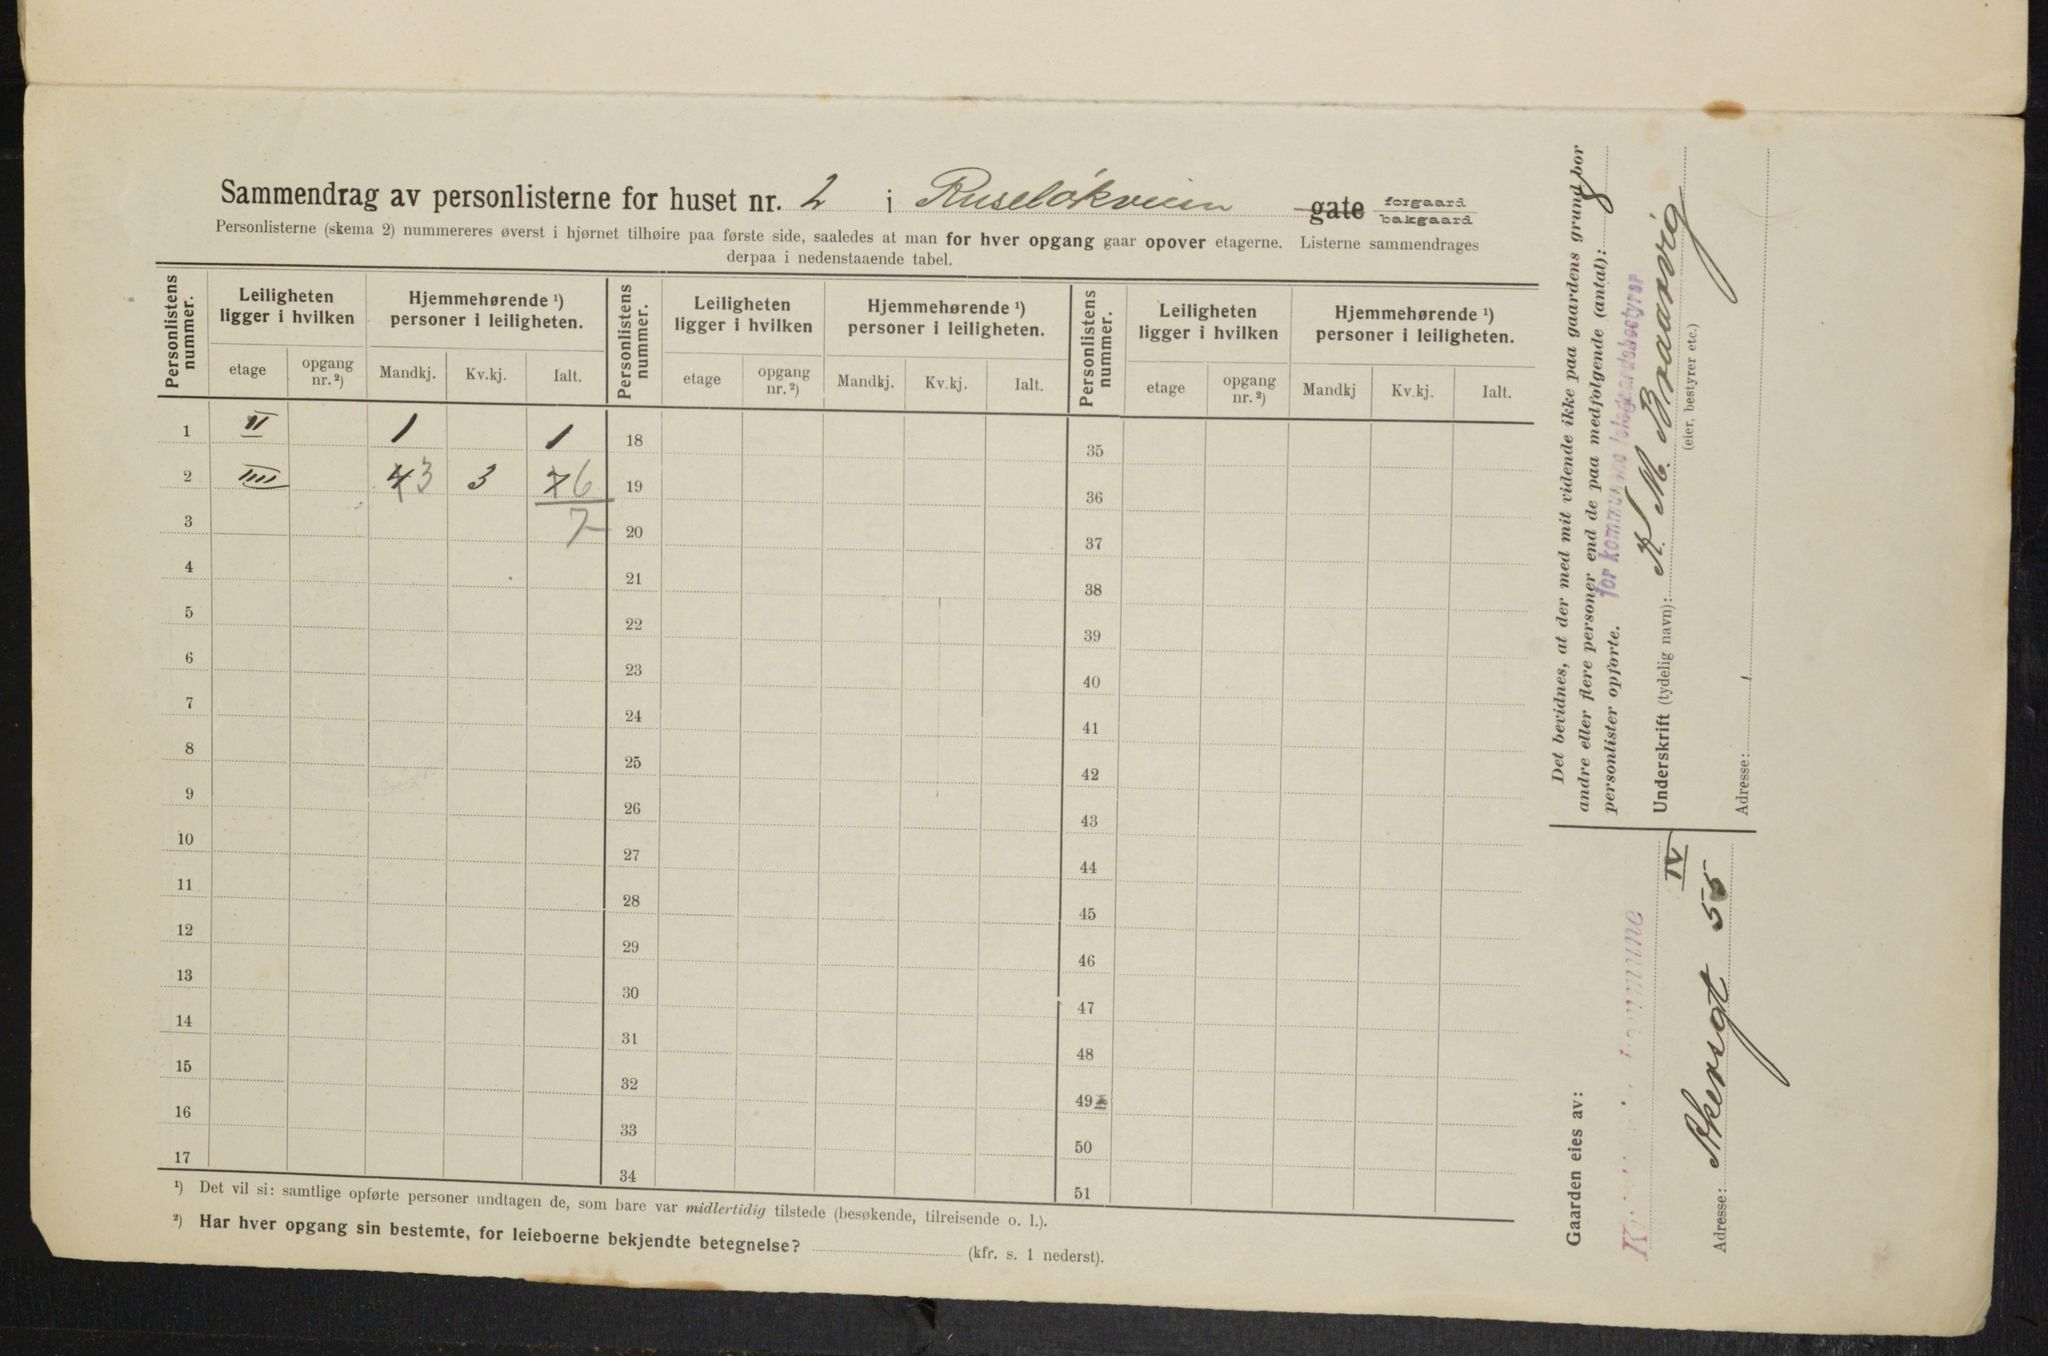 Sammendrag av personlisterne for huset nr. 2 i Ruseløkveien gate forgaard bakgaard
Personlisterne (skema 2) nummereres øverst i hjørnet tilhøire paa første side, saaledes at man for hver opgang gaar opover etagerne. Listerne sammendrages
derpaa i nedenstaaende tabel.
Personlistens nummer. Leiligheten ligger i hvilken Hjemmehørende ¹) personer i leiligheten. Personlistens nummer. Leiligheten ligger i hvilken Hjemmehørende ¹) personer i leiligheten. Personlistens nummer. Leiligheten ligger i hvilken Hjemmehørende ¹) personer i leiligheten.
etage opgang nr. ²) Mandkj. Kv.kj. Ialt. etage opgang nr. ²) Mandkj. Kv.kj. Ialt. etage opgang nr. ²) Mandkj Kv.kj. Ialt.
1 II 1 1 18 35
2 IIII 4 3 3 7 6 19 36
3 7 20 37
4 21 38
5 22 39
6 23 40
7 24 41
8 25 42
9 26 43
10 27 44
11 28 45
12 29 46
13 30 47
14 31 48
15 32 49
16 33 50
17 34 51
¹) Det vil si: samtlige opførte personer undtagen de, som bare var midlertidig tilstede (besøkende, tilreisende o. l.).
²) Har hver opgang sin bestemte, for leieboerne bekjendte betegnelse? (kfr. s. 1 nederst).
Det bevidnes, at der med mit vidende ikke paa gaardens grund bor
andre eller flere personer end de paa medfølgende (antal):
personlister opførte.
for kommunens leiegaardsbestyrer
Underskrift (tydelig navn): K. M. Braarvig
(eier, bestyrer etc.)
Adresse:
Gaarden eies av:
kommune
IV
Adresse: Akersgt 55